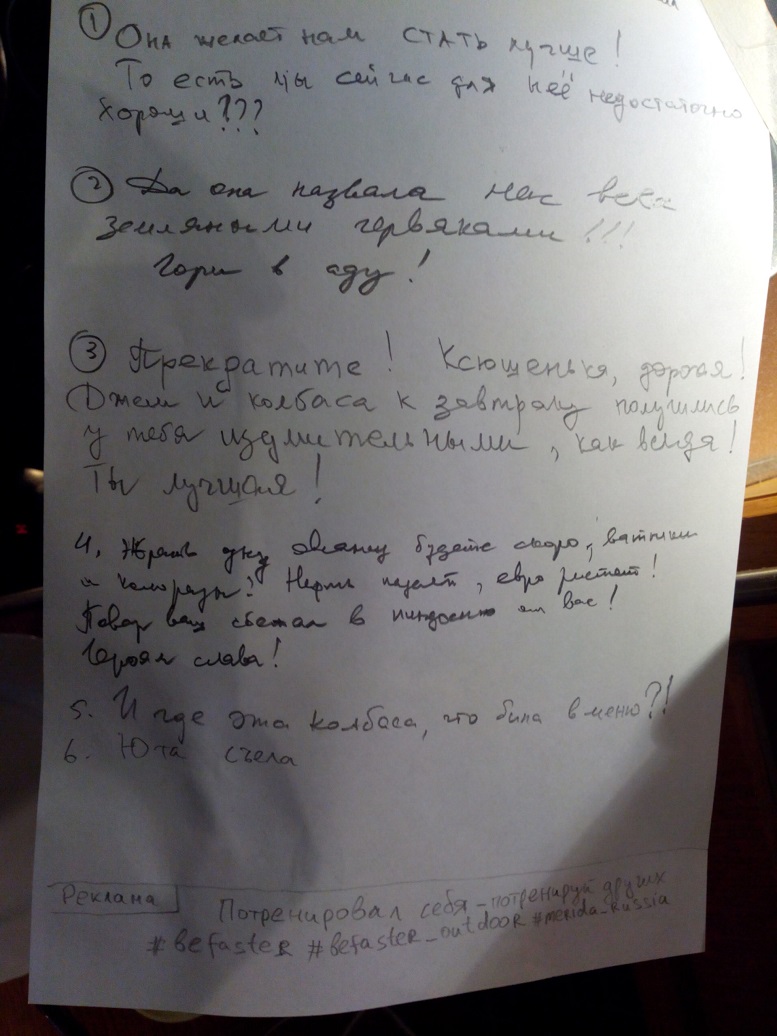 ① Она желает нам СТАТЬ лучше!
То есть мы сейчас для неё недостаточно
хороши???
② Да она назвала нас всех
земляными червяками!!!
Гори в аду!
③ Прекратите! Ксюшенька, дорогая!
Джем и колбаса к завтраку получились
у тебя изумительными, как всегда!
Ты лучшая!
4. Жрать одну овсянку будете скоро, ватники
и колорады! Нефть падает, евро растет!
Повар ваш сбежал в пиндосию от вас!
Героям слава!
5. И где эта колбаса, что была в меню?!
6. Юта съела
Реклама
Потренировал себя - потренируй других
#befaster #befaster_outdoor #merida_russia